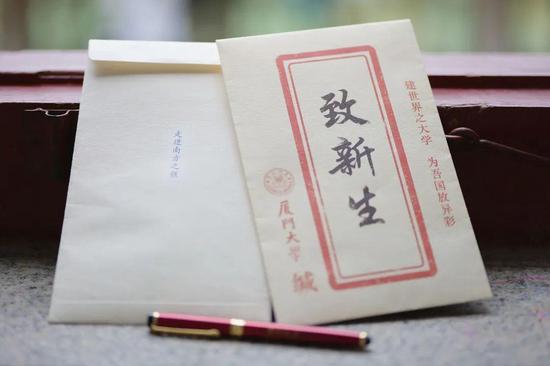 走进南方之强
建世界之大学 为吾国放异彩
致新生
厦门大学 缄